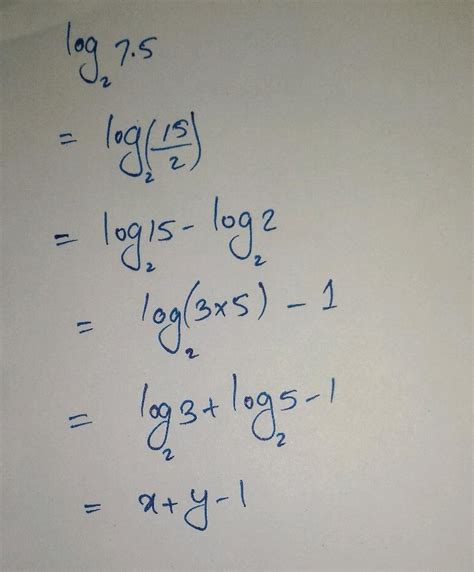 log₂ 7.5
= log₂(15/2)
= log₂15 - log₂2
= log₂(3×5) - 1
= log₂3 + log₂5 - 1
= x + y - 1